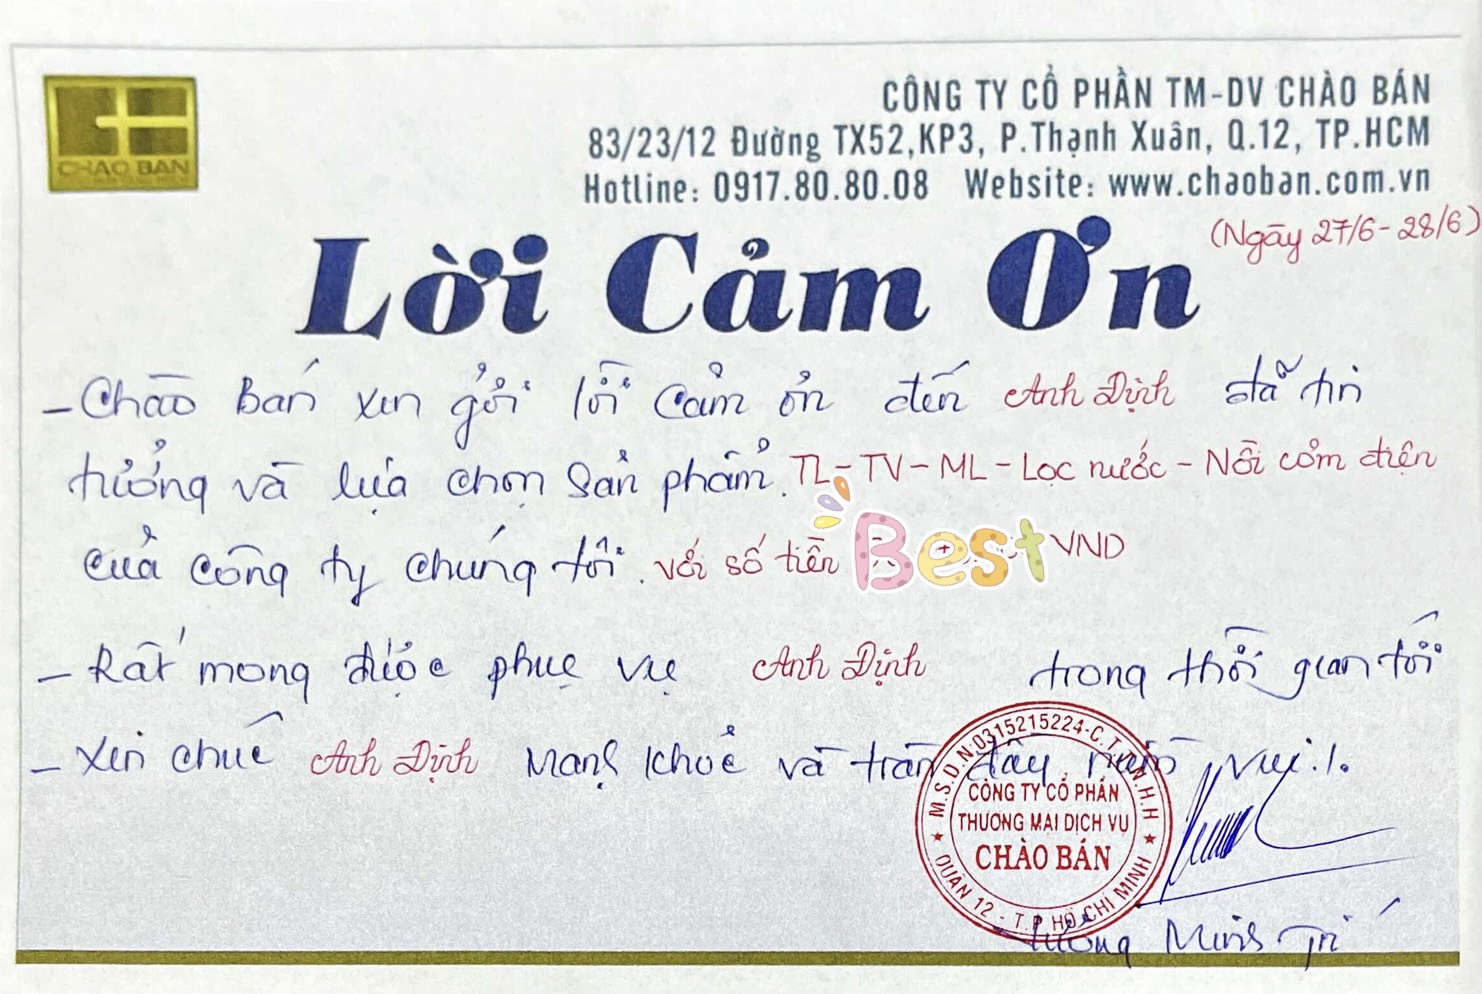 CHAO BAN
CÔNG TY CỔ PHẦN TM-DV CHÀO BÁN
83/23/12 Đường TX52,KP3, P.Thạnh Xuân, Q.12, TP.HCM
Hotline: 0917.80.80.08 Website: www.chaoban.com.vn
(Ngày 27/6-28/6)
Lời Cảm Ơn
- Chào Bán xin gởi lời cảm ơn đến Anh Định đã tin
tưởng và lựa chọn sản phẩm. TL-TV-ML-Lọc nước-Nồi cơm điện
của công ty chúng tôi. với số tiền Best VND
- Rất mong được phục vụ Anh Định trong thời gian tới
- Xin chúc Anh Định mạnh khỏe và tràn đầy niềm vui!.
M.S.D.N:0315215224-C.T.T.N.H.H
CÔNG TY CỔ PHẦN
THƯƠNG MẠI DỊCH VỤ
CHÀO BÁN
QUẬN 12 - T.P HỒ CHÍ MINH
Minh Trí